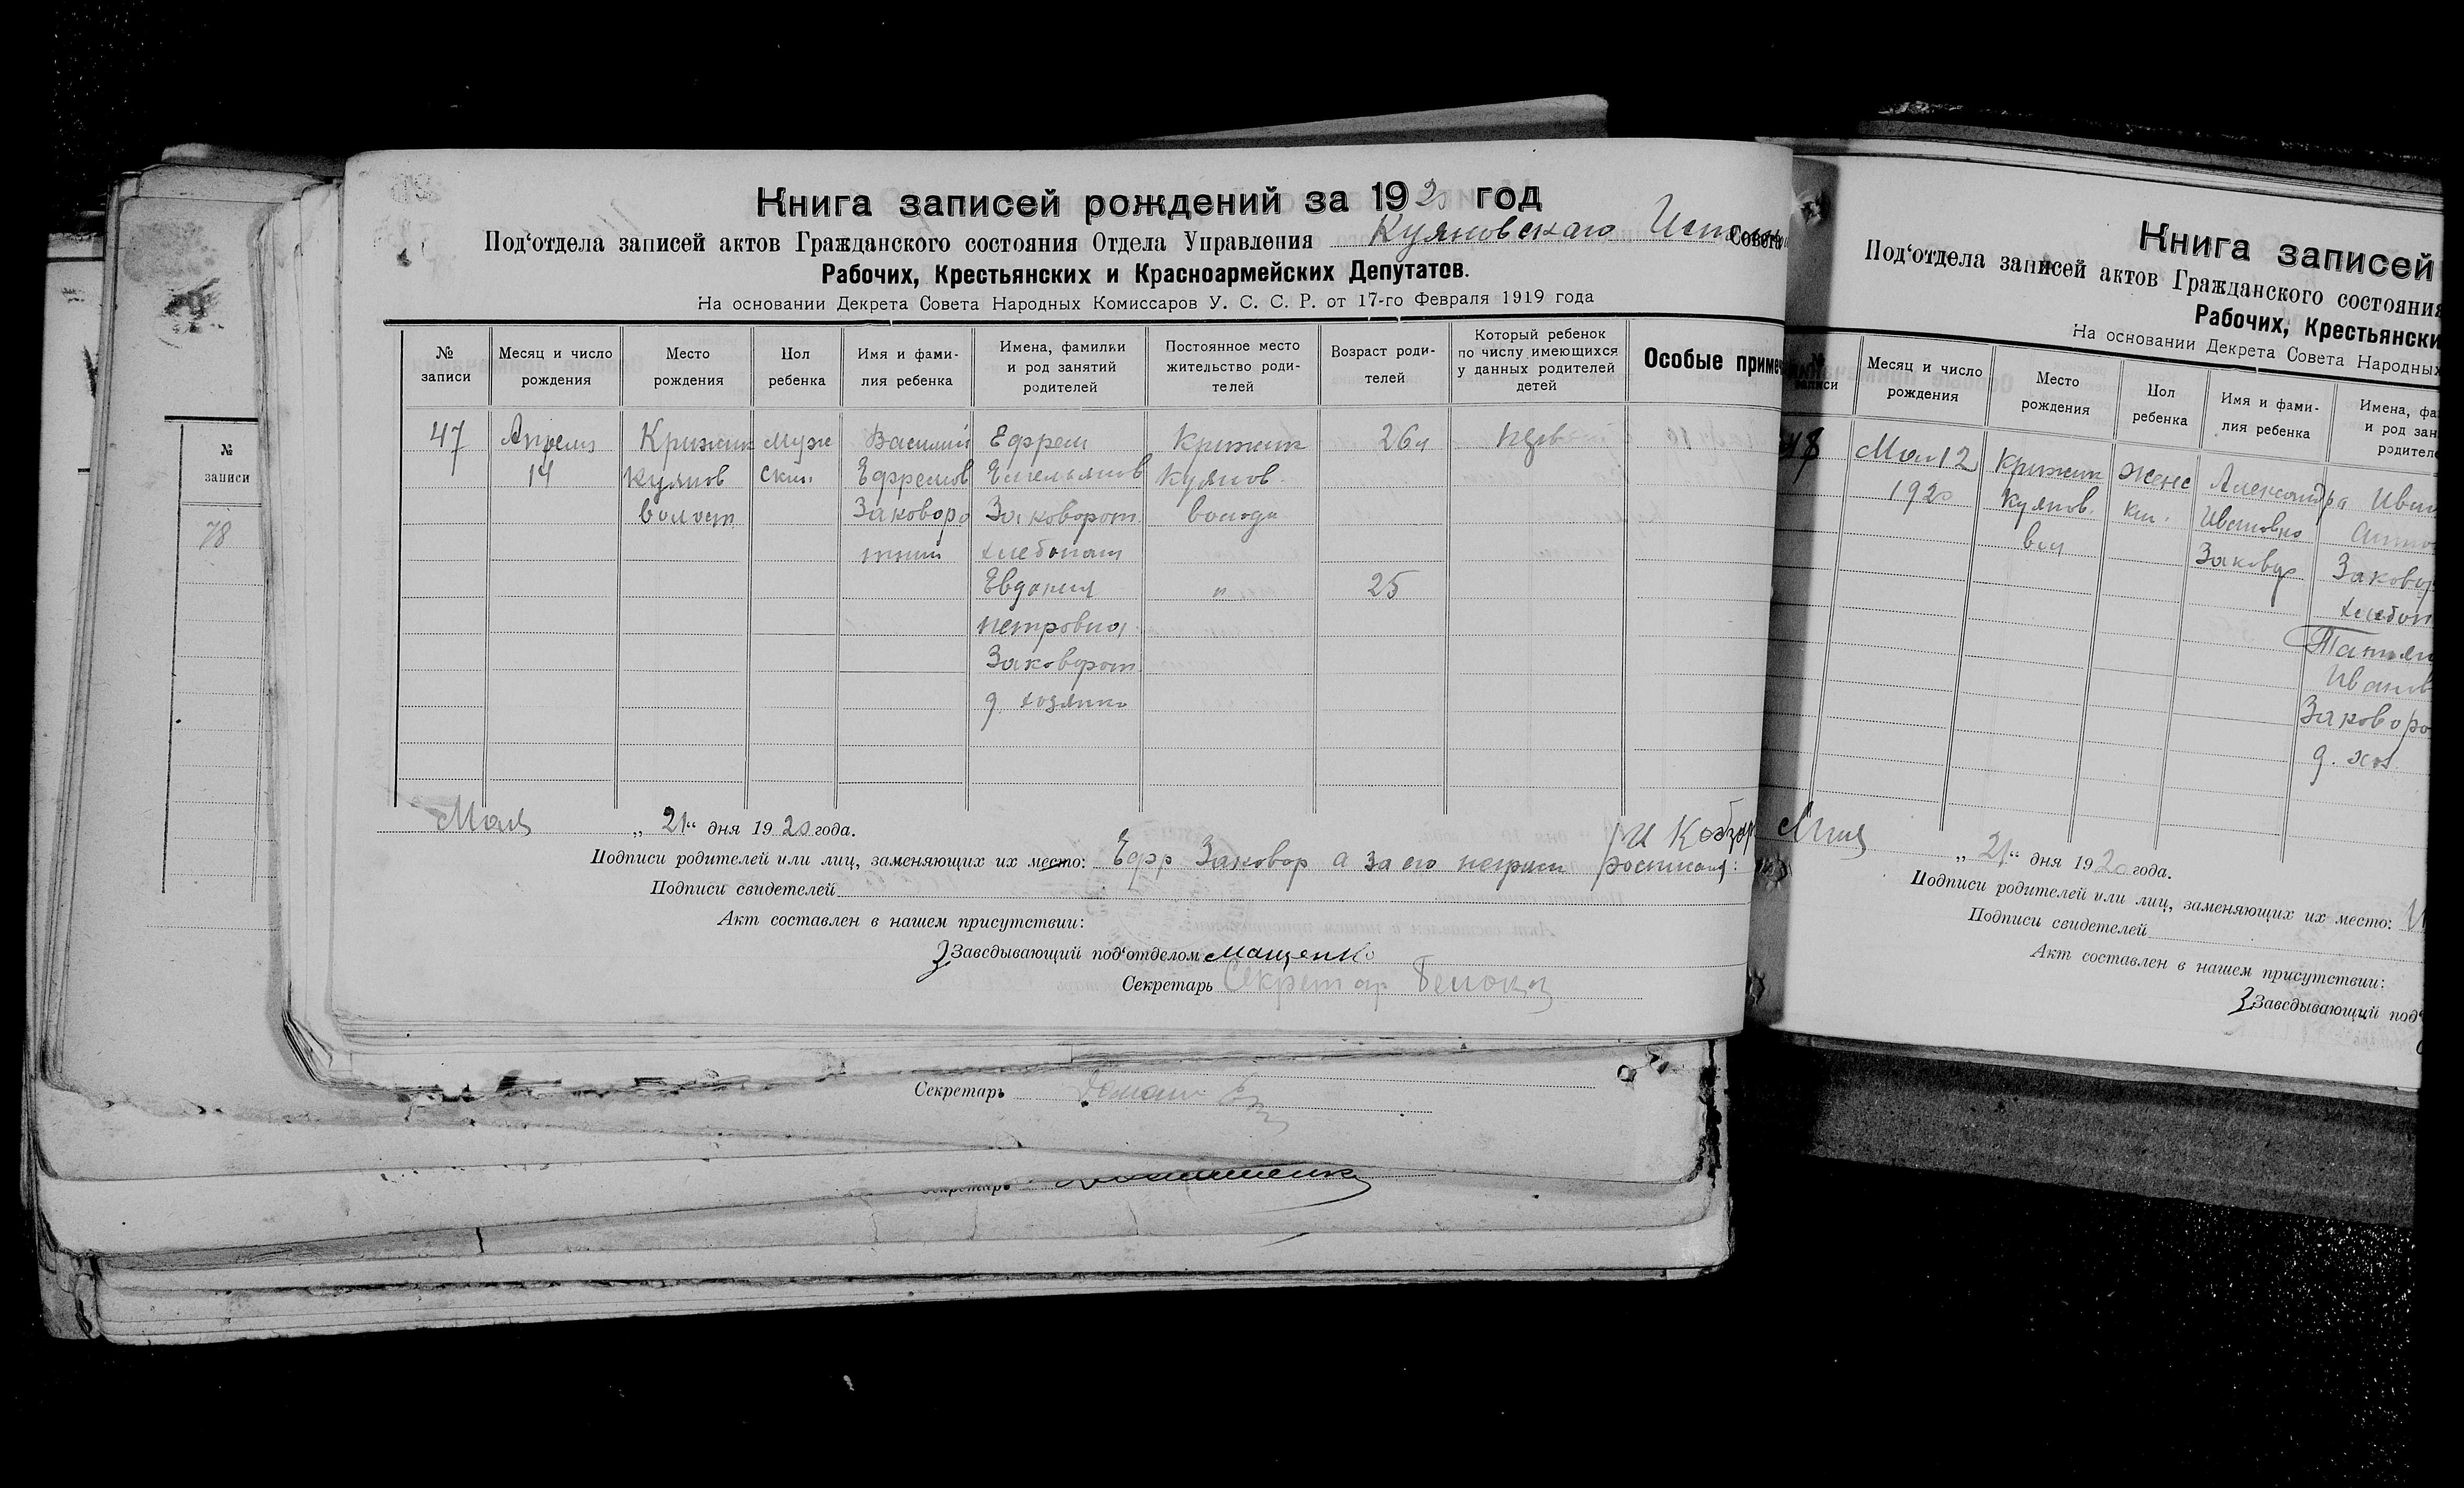 Книга записей рождений за 1920 год
Под‘отдела записей актов Гражданского состояния Отдела Управления Куяновскаго Совета
Рабочих, Крестьянских и Красноармейских Депутатов.
На основании Декрета Совета Народных Комиссаров У. С. С. Р. от 17-го Февраля 1919 года
№ записи
Месяц и число рождения
Место рождения
Пол ребенка
Имя и фами-
лия ребенка
Имена, фамилки
и род занятий
родителей
Постоянное место
жительство роди-
телей
Возраст роди-
телей
Который ребенок
по числу имеющихся
у данных родителей
детей
Особые примеч
47
Апреля
14
Крижик
Куянов
волост
Муж
ски.
Василий
Ефремов
Заковоро
тний
Ефрем
Емельянов
Заковорот
хлебопаш
Евдокия
петровна
Заковорот
д. хозяика
Крижик
Куянов
волости
"
26
25
Мая „ 21“ дня 1920 года.
И Кобзар
Подписи родителей или лиц, заменяющих их место: Ефр Заковор а за его неграм росписался:
Подписи свидетелей
Акт составлен в нашем присутствии:
Заведывающий под‘отделом Мащенко
Секретарь Секретар
Секретарь
Секретарь
№
записи
78
Книга записей
Под‘отдела записей актов Гражданского состояния
Рабочих, Крестьянски
На основании Декрета Совета Народных
№
записи
Месяц и число
рождения
Место
рождения
Пол
ребенка
Имя и фами-
лия ребенка
Имена, фа
и род зан
родител
48
Мая 12
1920
Крижик
Куянов.
вол
Женс
ки.
Александра
Ивановна
Заковор
Иван
Заковор
хлебоп
Татьян
Иванов
Заковоро
д. хоз
Мая „ 21“ дня 1920 года.
Подписи родителей или лиц, заменяющих их место:
Подписи свидетелей
Акт составлен в нашем присутствии:
Заведывающий под‘